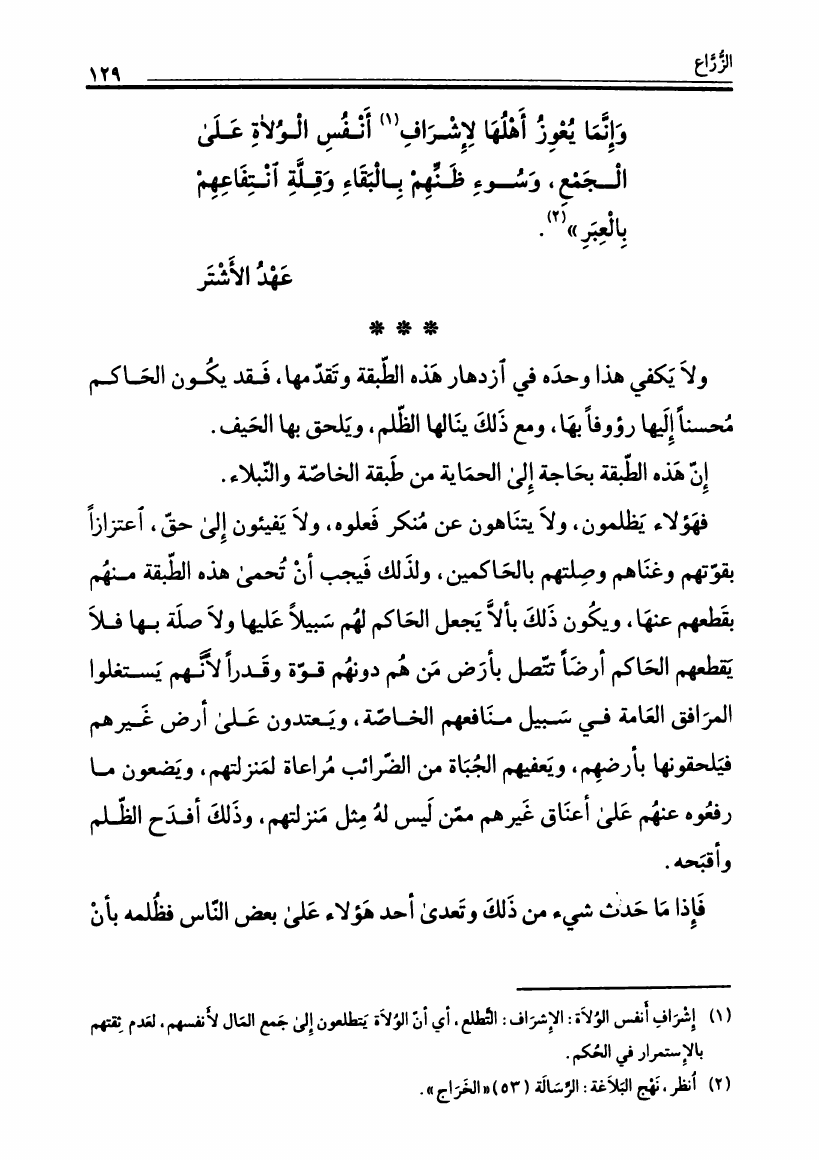 الزُّرَّاع
١٢٩
وَإِنَّمَا يُعْوِزُ أَهْلُهَا لِإِشْـرَافِ(١) أَنْـفُسِ الْـوُلاٰةِ عَـلَىٰ
الْـجَمْعِ، وَسُــوءِ ظَـنِّهِمْ بِـالْبَقَاءِ وَقِـلَّةِ ٱنْـتِفَاعِهِمْ
بِالْعِبَرِ»(٢).
عَهْدُ الأَشْتَر
* * *
ولاَ يَكفي هذا وحدَه في ٱزدهار هَذه الطّبقة وتَقدّمها، فَـقد يكُـون الحَـاكـم
مُحسناً إِلَيها رؤوفاً بهَا، ومع ذَلكَ ينَالها الظّلم، ويَلحق بها الحَيف.
إِنّ هَذه الطّبقة بحَاجة إِلىٰ الحمَاية من طَبقة الخاصّة والنّبلاء.
فهَؤلاء يَظلمون، ولاَ يتنَاهون عن مُنكر فَعلوه، ولاَ يَفيئون إِلىٰ حقّ، ٱعتزازاً
بقوّتهم وغنَاهم وصِلتهم بالحَاكمين، ولذَلك فَيجب أنْ تُحمىٰ هذه الطّبقة مـنهُم
بقَطعهم عنهَا، ويكُون ذَلكَ بألاَّ يَجعل الحَاكم لهُم سَبيلاً عَليها ولاَ صلَة بـها فـلاَ
يَقطعهم الحَاكم أرضَاً تتّصل بأرَض مَن هُم دونهُم قـوّة وقَـدراً لأنَّـهم يَسـتغلوا
المرَافق العَامة فـي سَـبيل مـنَافعهم الخـاصّة، ويَـعتدون عَـلىٰ أرض غَـيرهم
فيَلحقونها بأرضهِم، ويَعفيهم الجُبَاة من الضّرائب مُراعاة لمَنزلتهم، ويَضعون مـا
رفعُوه عنهُم عَلىٰ أعنَاق غَيرهم ممّن لَيس لهُ مِثل مَنزلتهم، وذَلكَ أفـدَح الظّـلم
وأقبَحه.
فَإِذا مَا حَدث شيء من ذَلكَ وتَعدىٰ أحد هَؤلاء عَلىٰ بعض النّاس فظُلمه بأنْ
(١) إِشْرَافِ أَنفس الوُلاَة: الإشرَاف: التّطلع، أي أنّ الوُلاَة يَتطلعون إِلىٰ جَمع المَال لأَنفسهم، لعَدم ثِقتهم
بالإِستمرار في الحُكم.
(٢) أنظر، نَهْج البَلاَغة: الرِّسالَة (٥٣)«الخَرَاج».